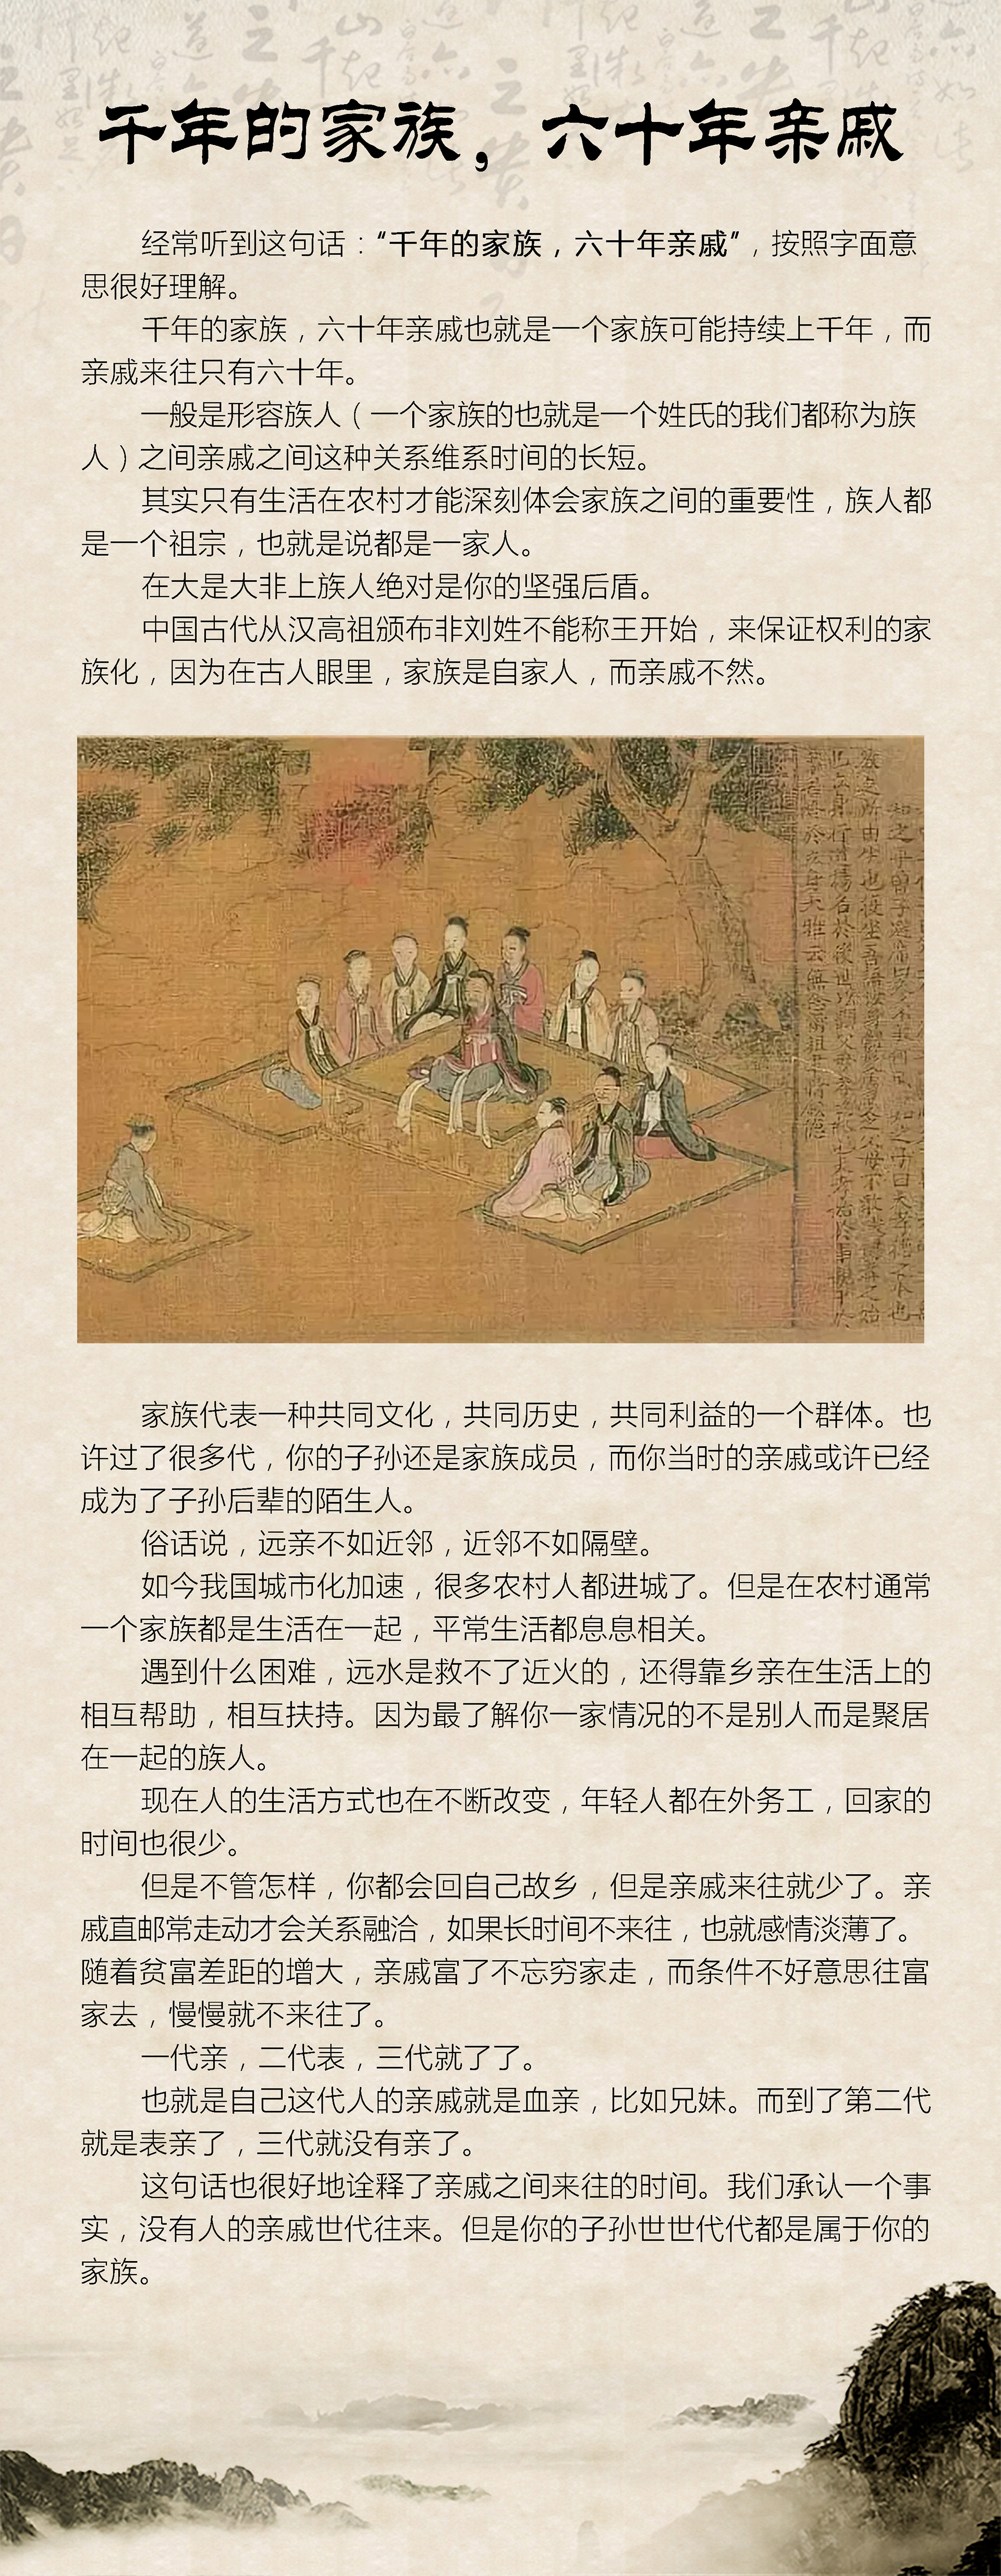 千年的家族，六十年亲戚
经常听到这句话：“千年的家族，六十年亲戚”，按照字面意
思很好理解。
千年的家族，六十年亲戚也就是一个家族可能持续上千年，而
亲戚来往只有六十年。
一般是形容族人（一个家族的也就是一个姓氏的我们都称为族
人）之间亲戚之间这种关系维系时间的长短。
其实只有生活在农村才能深刻体会家族之间的重要性，族人都
是一个祖宗，也就是说都是一家人。
在大是大非上族人绝对是你的坚强后盾。
中国古代从汉高祖颁布非刘姓不能称王开始，来保证权利的家
族化，因为在古人眼里，家族是自家人，而亲戚不然。
家族代表一种共同文化，共同历史，共同利益的一个群体。也
许过了很多代，你的子孙还是家族成员，而你当时的亲戚或许已经
成为了子孙后辈的陌生人。
俗话说，远亲不如近邻，近邻不如隔壁。
如今我国城市化加速，很多农村人都进城了。但是在农村通常
一个家族都是生活在一起，平常生活都息息相关。
遇到什么困难，远水是救不了近火的，还得靠乡亲在生活上的
相互帮助，相互扶持。因为最了解你一家情况的不是别人而是聚居
在一起的族人。
现在人的生活方式也在不断改变，年轻人都在外务工，回家的
时间也很少。
但是不管怎样，你都会回自己故乡，但是亲戚来往就少了。亲
戚直邮常走动才会关系融洽，如果长时间不来往，也就感情淡薄了。
随着贫富差距的增大，亲戚富了不忘穷家走，而条件不好意思往富
家去，慢慢就不来往了。
一代亲，二代表，三代就了了。
也就是自己这代人的亲戚就是血亲，比如兄妹。而到了第二代
就是表亲了，三代就没有亲了。
这句话也很好地诠释了亲戚之间来往的时间。我们承认一个事
实，没有人的亲戚世代往来。但是你的子孙世世代代都是属于你的
家族。